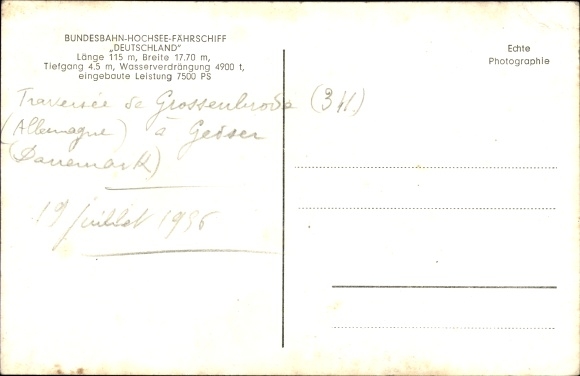 BUNDESBAHN-HOCHSEE-FÄHRSCHIFF
„DEUTSCHLAND"
Länge 115 m, Breite 17,70 m,
Tiefgang 4,5 m, Wasserverdrängung 4900 t,
eingebaute Leistung 7500 PS
Echte
Photographie
Traversée de Grossenbrode (3 H)
(Allemagne) à Gedser
(Danemark)
19 juillet 1956